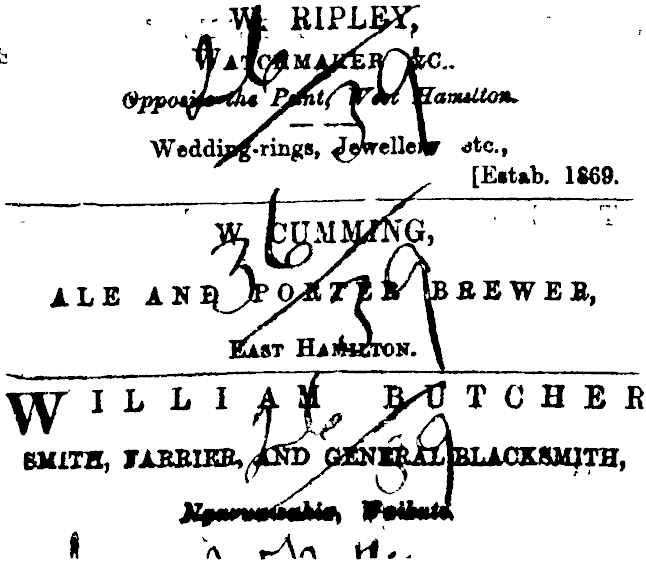 W. RIPLEY,
WATCHMAKER &C..
Opposite the Punt, West Hamilton.
Wedding-rings, Jewellery etc.,
[Estab. 1869.
W. CUMMING,
ALE AND PORTER BREWER,
EAST HAMILTON.
WILLIAM BUTCHER
SMITH, FARRIER, AND GENERAL BLACKSMITH,
Ngaruawahia, Waikato.